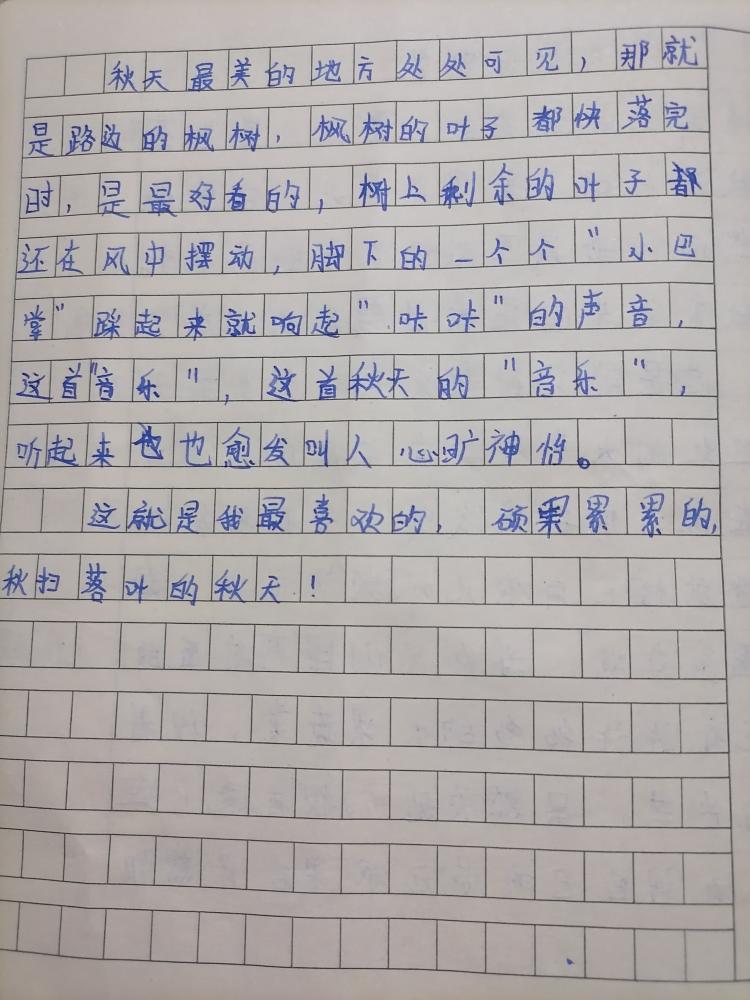 秋天最美的地方处处可见，那就
是路边的枫树，枫树的叶子都快落完
时，是最好看的，树上剩余的叶子都
还在风中摆动，脚下的一个个"小巴
掌"踩起来就响起"咔咔"的声音，
这首"音乐"，这首秋天的"音乐"，
听起来也也愈发叫人心旷神怡。
这就是我最喜欢的，硕果累累的，
秋扫落叶的秋天！